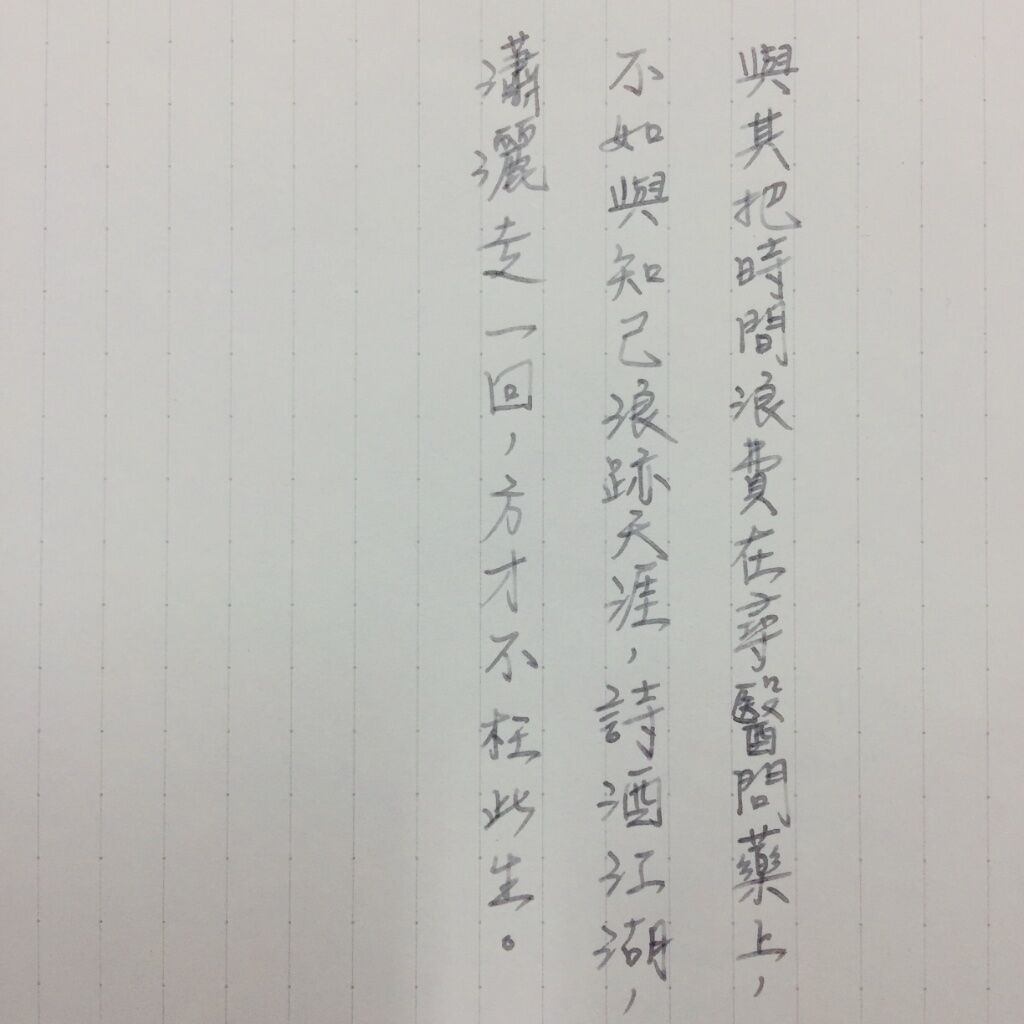 與其把時間浪費在尋醫問藥上，
不如與知己浪跡天涯，詩酒江湖，
瀟灑走一回，方才不枉此生。